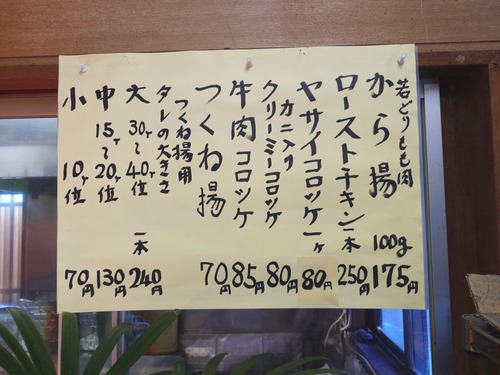 若どりもも肉
から揚 100g 175円
ローストチキン 一本 250円
ヤサイコロッケ 一ヶ 80円
カニ入り
クリーミーコロッケ 80円
牛肉コロッケ 85円
つくね揚 70円
つくね揚用
タレの大きさ
大 30r〜40r位 一本 240円
中 15r〜20r位 130円
小 10r位 70円